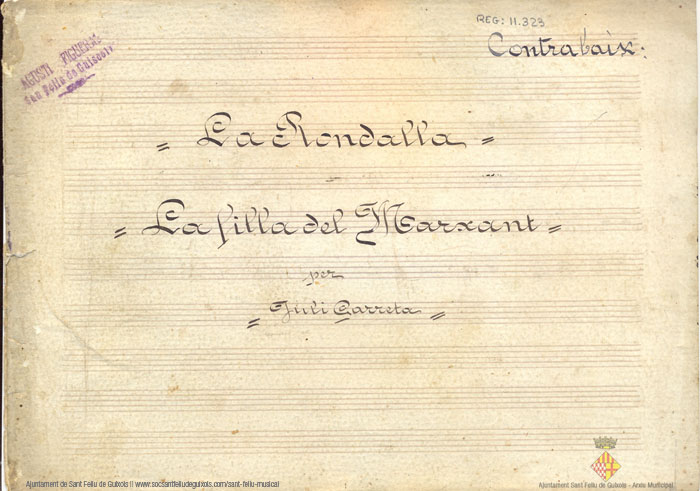 REG: 11.323
Contrabaix.
AGUSTÍ FIGUERAS
San Feliu de Guíxols
= La Rondalla =
= La filla del Marxant =
per
= Juli Garreta =
Ajuntament de Sant Feliu de Guíxols || www.socsantfeliudeguixols.com/sant-feliu-musical
Ajuntament Sant Feliu de Guíxols - Arxiu Municipal